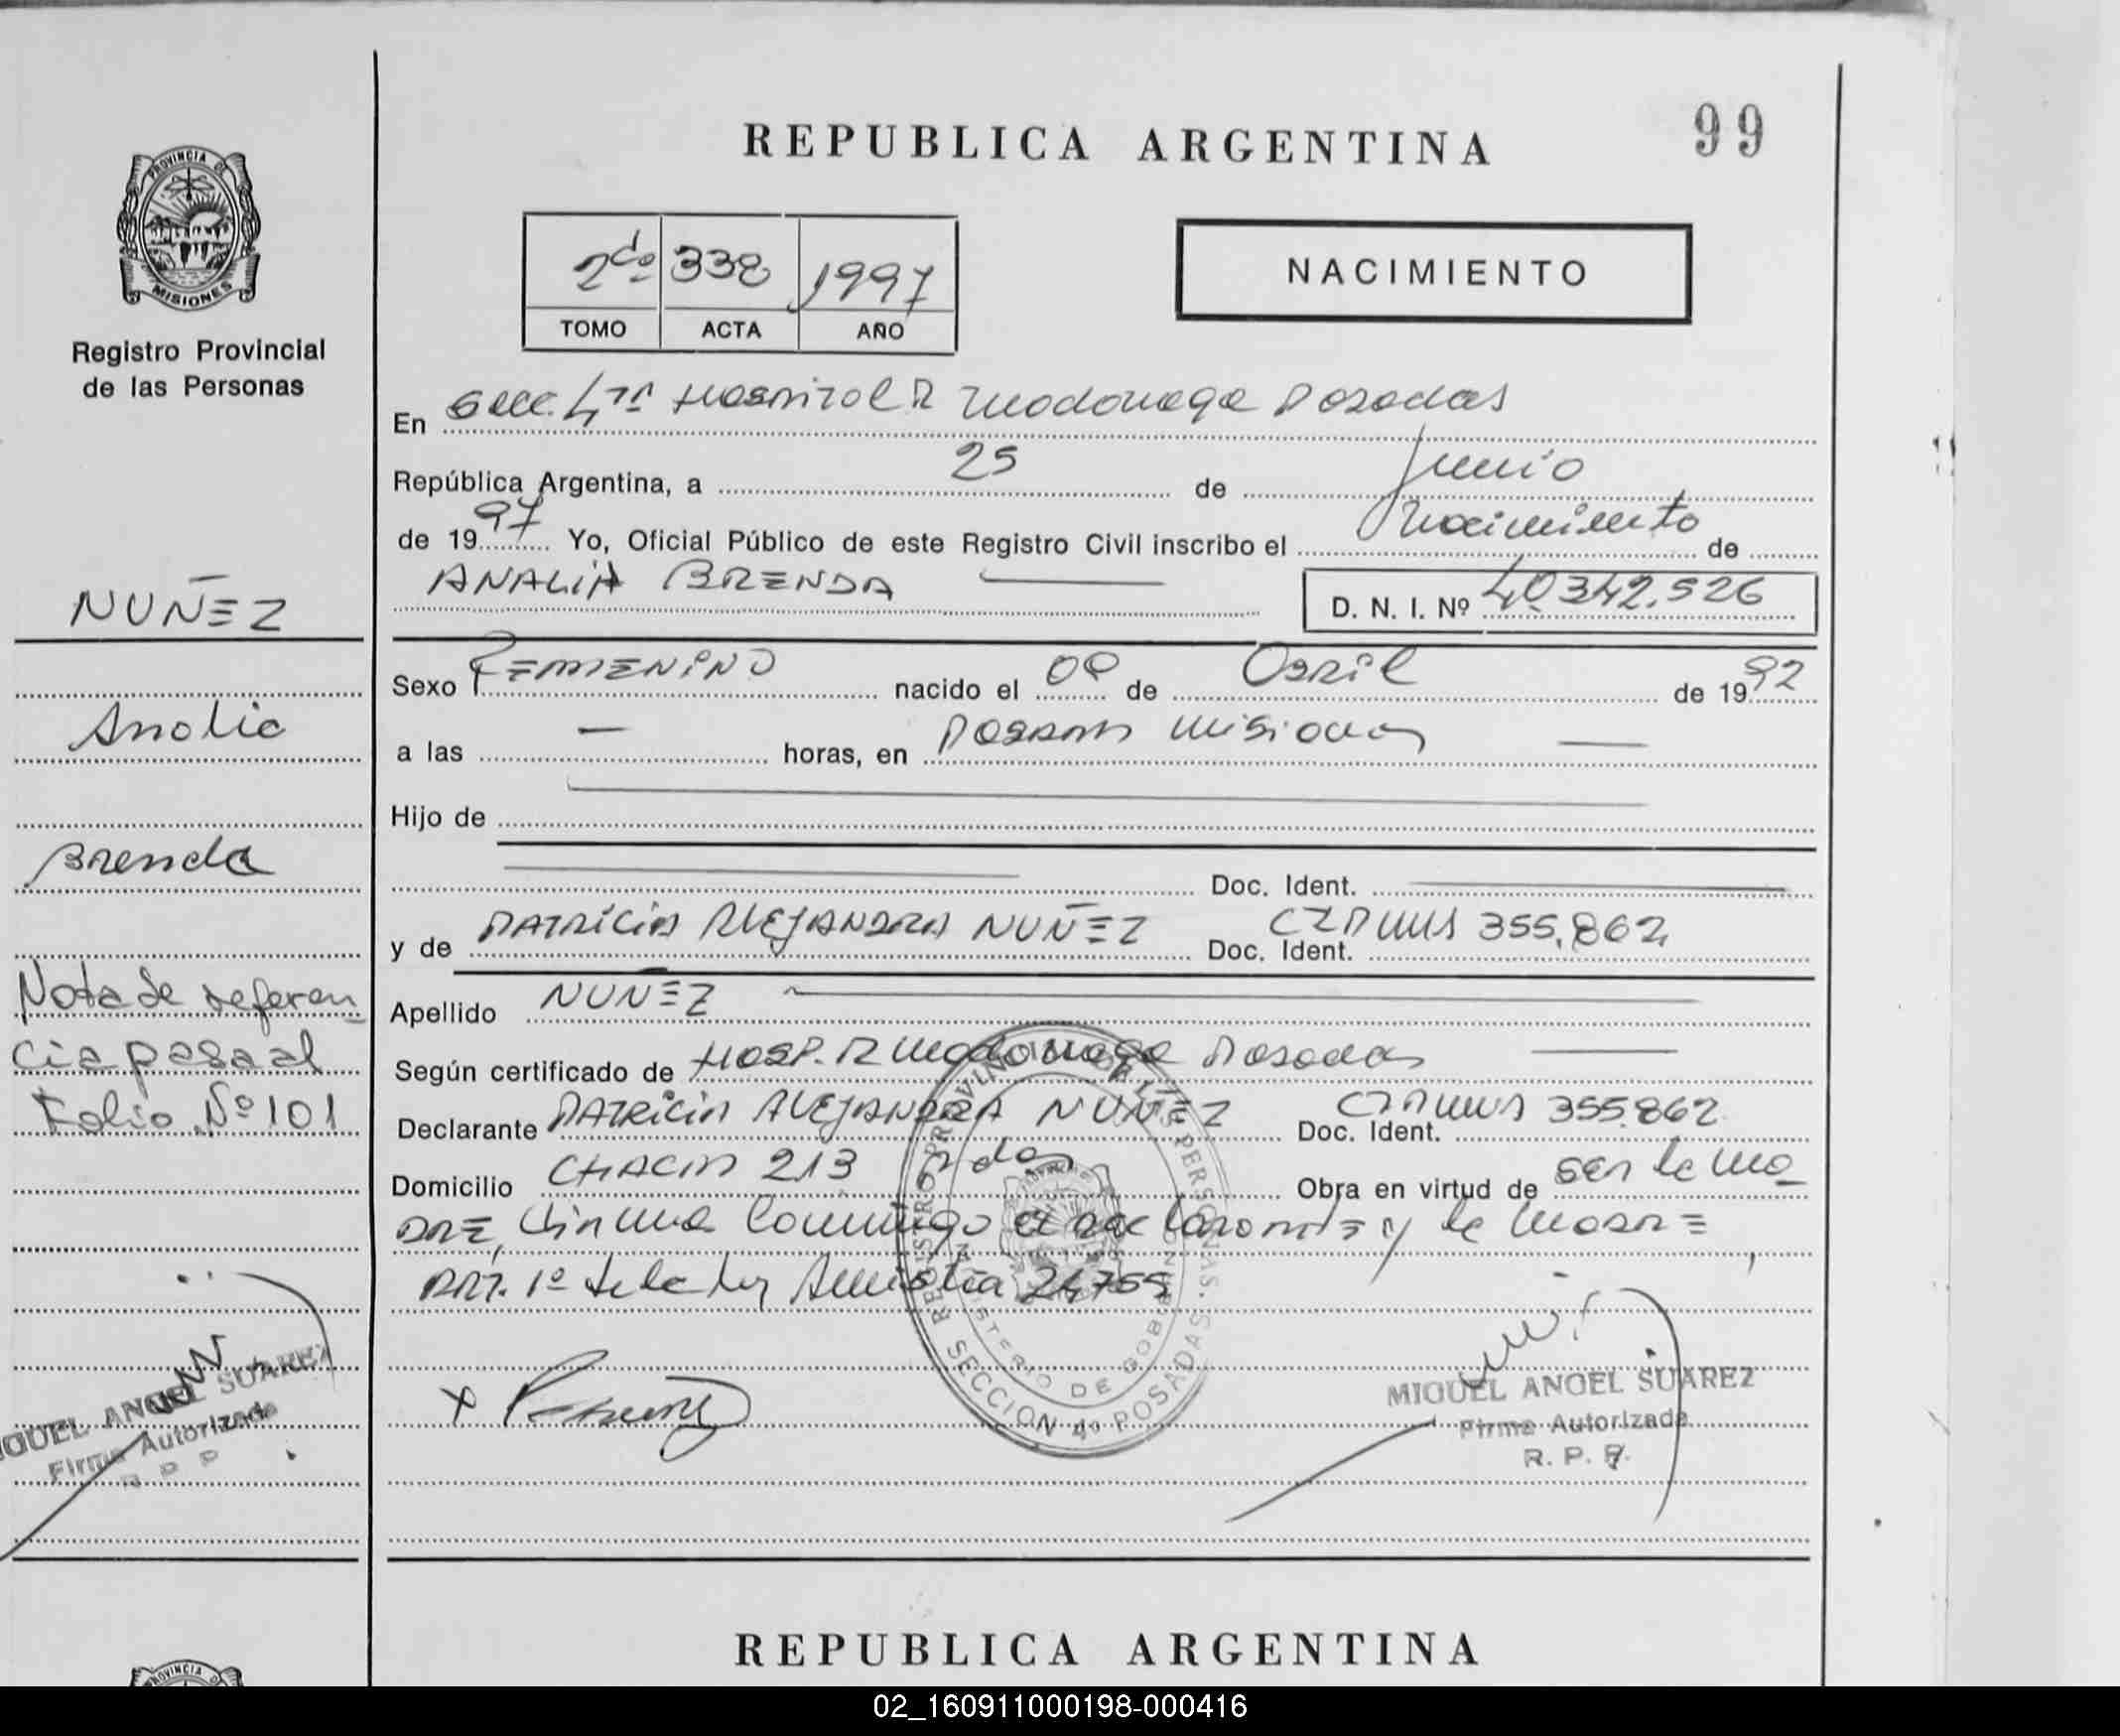 REPUBLICA ARGENTINA
99
PROVINCIA DE
MISIONES
Registro Provincial
de las Personas
2do 338 1997
TOMO ACTA AÑO
NACIMIENTO
En Secc. 4ta Hospital R Madariaga Posadas
República Argentina, a 25 de Junio
de 1997 Yo, Oficial Público de este Registro Civil inscribo el Nacimiento de
ANALIA BRENDA
D. N. I. Nº 40.342.526
NUÑEZ
Analia
Brenda
Nota de referen
cia pasa al
Folio Nº 101
Sexo FEMENINO nacido el de Abril de 1992
a las — horas, en Posadas Misiones
Hijo de
Doc. Ident.
y de PATRICIA ALEJANDRA NUÑEZ Doc. Ident. 355.862
Apellido NUÑEZ
Según certificado de HOSP. R Madariaga Posadas
Declarante PATRICIA ALEJANDRA NUÑEZ Doc. Ident. 355.862
Domicilio 213 Pdas Obra en virtud de ser la ma
dre, firma conmigo el declarante y la madre
Art. 1º de la Ley Amnistia 24755
REGISTRO PROVINCIAL DE LAS PERSONAS.
MINISTERIO DE GOBIERNO
SECCION 4º POSADAS
MIGUEL ANGEL SUAREZ
Firma Autorizada
R. P. P.
MIGUEL ANGEL SUAREZ
Firma Autorizada
R P P
REPUBLICA ARGENTINA
02_160911000198-000416